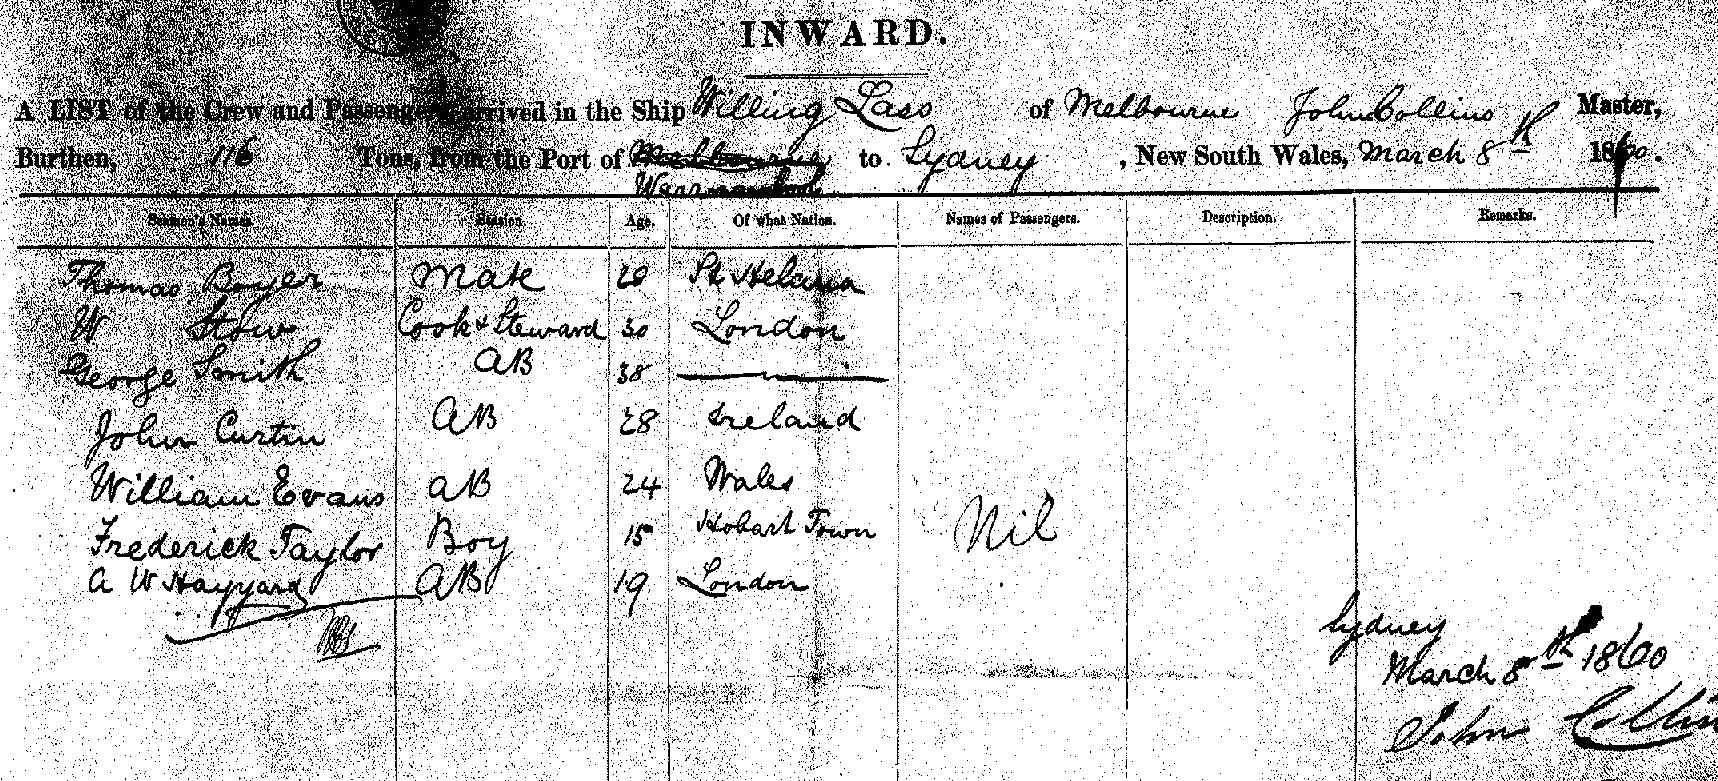 INWARD.
A LIST of the Crew and Passengers arrived in the Ship Willing Lass of Melbourne John Collins Master,
Burthen, 116 Tons, from the Port of Melbourne to Sydney, New South Wales, March 8th 1860.
Warrnambool
Seamen's Names. Station. Age. Of what Nation. Names of Passengers. Description. Remarks.
Thomas Boyer Mate 28 St Helena
W Stow Cook & Steward 30 London
George Smith AB 38
John Curtin AB 28 Ireland
William Evans AB 24 Wales
Frederick Taylor Boy 15 Hobart Town
Nil
A W Hayyard AB 19 London
Sydney
March 8th 1860
John Collin